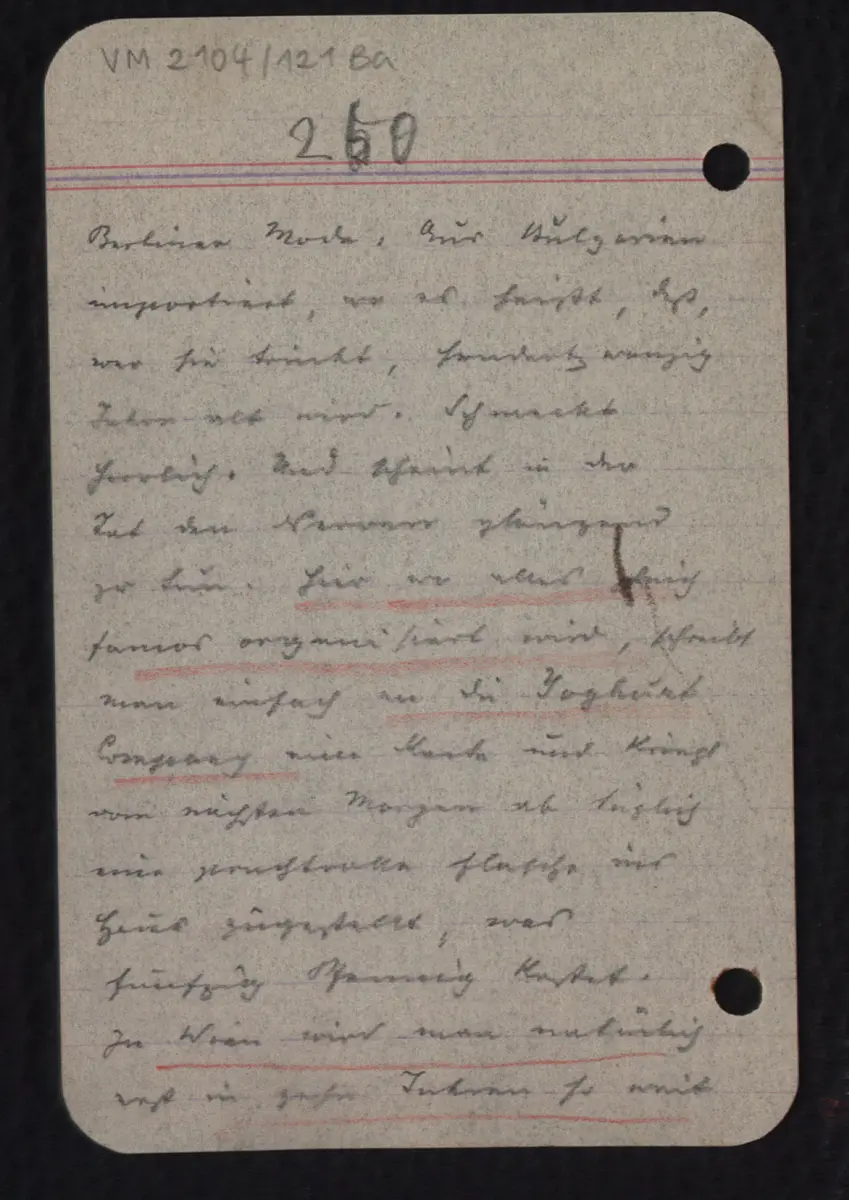 VM 2104/121 Ba
250
Berliner Mode. Aus Bulgarien
importiert, wo es heißt, daß,
wer sie trinkt, hundertzwanzig
Jahre alt wird. Schmeckt
herrlich. Und scheint in der
Tat den Nerven glänzend
zu tun. Hier wo alles gleich
famos organisiert wird, schreibt
man einfach an die Yoghurt
Company eine Karte und kriegt
vom nächsten Morgen ab täglich
eine prachtvolle Flasche ins
Haus zugestellt, was
fünfzig Pfennig kostet.
In Wien wird man natürlich
erst in zehn Jahren so weit